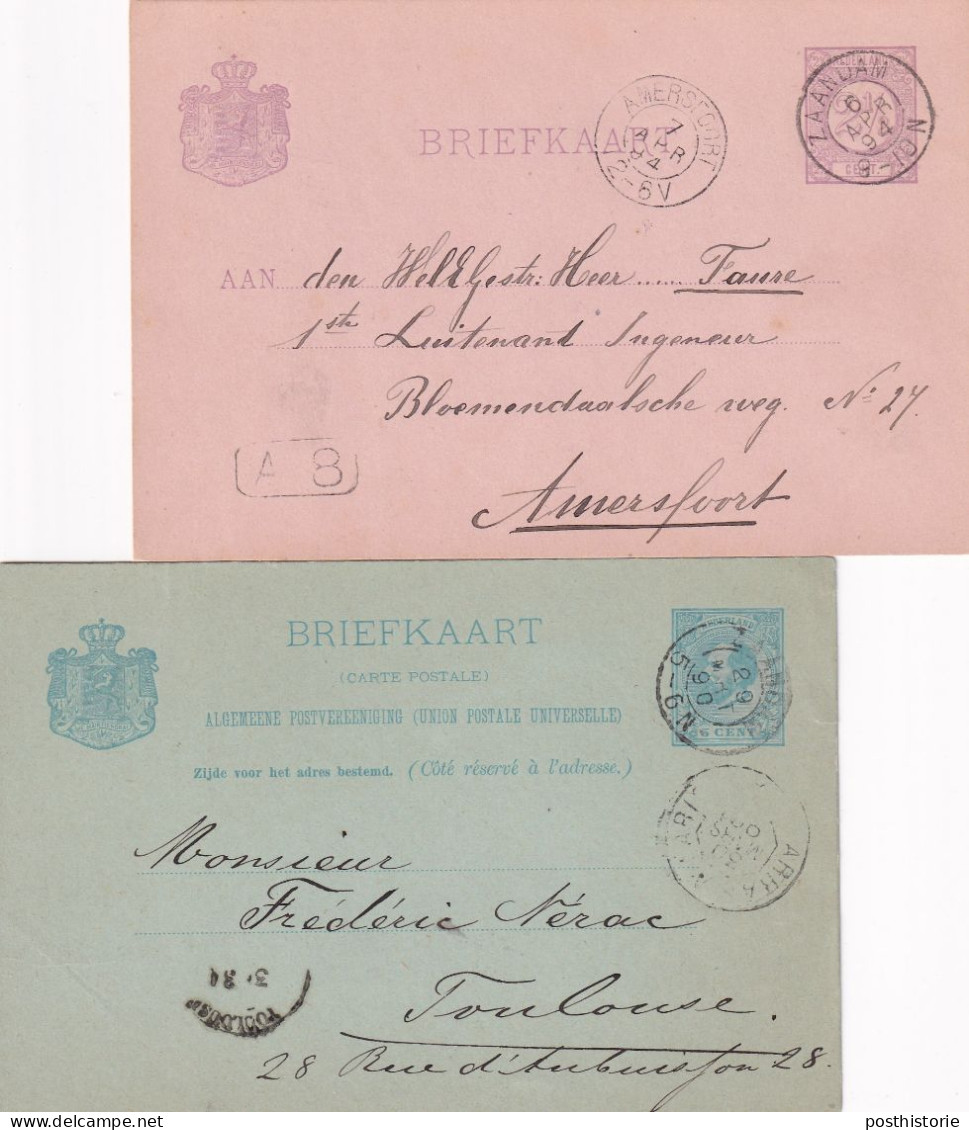 BRIEFKAART
AMERSFOORT
7
APR
94
12-6V
ZAANDAM
6
APR
94
9-10N
CENT.
AAN den WelEdGestr: Heer ...... Faure
1ste Luitenand Ingeneur
Bloemendaalsche weg. No: 27.
Amersfoort
A 8
BRIEFKAART
(CARTE POSTALE)
ALGEMEENE POSTVEREENIGING (UNION POSTALE UNIVERSELLE)
Zijde voor het adres bestemd. (Côté réservé à l'adresse.)
29
90
5-6N
6 CENT
Monsieur
Frédéric Nérac
Toulouse.
28 Rue d'Aubuisson 28.
posthistorie